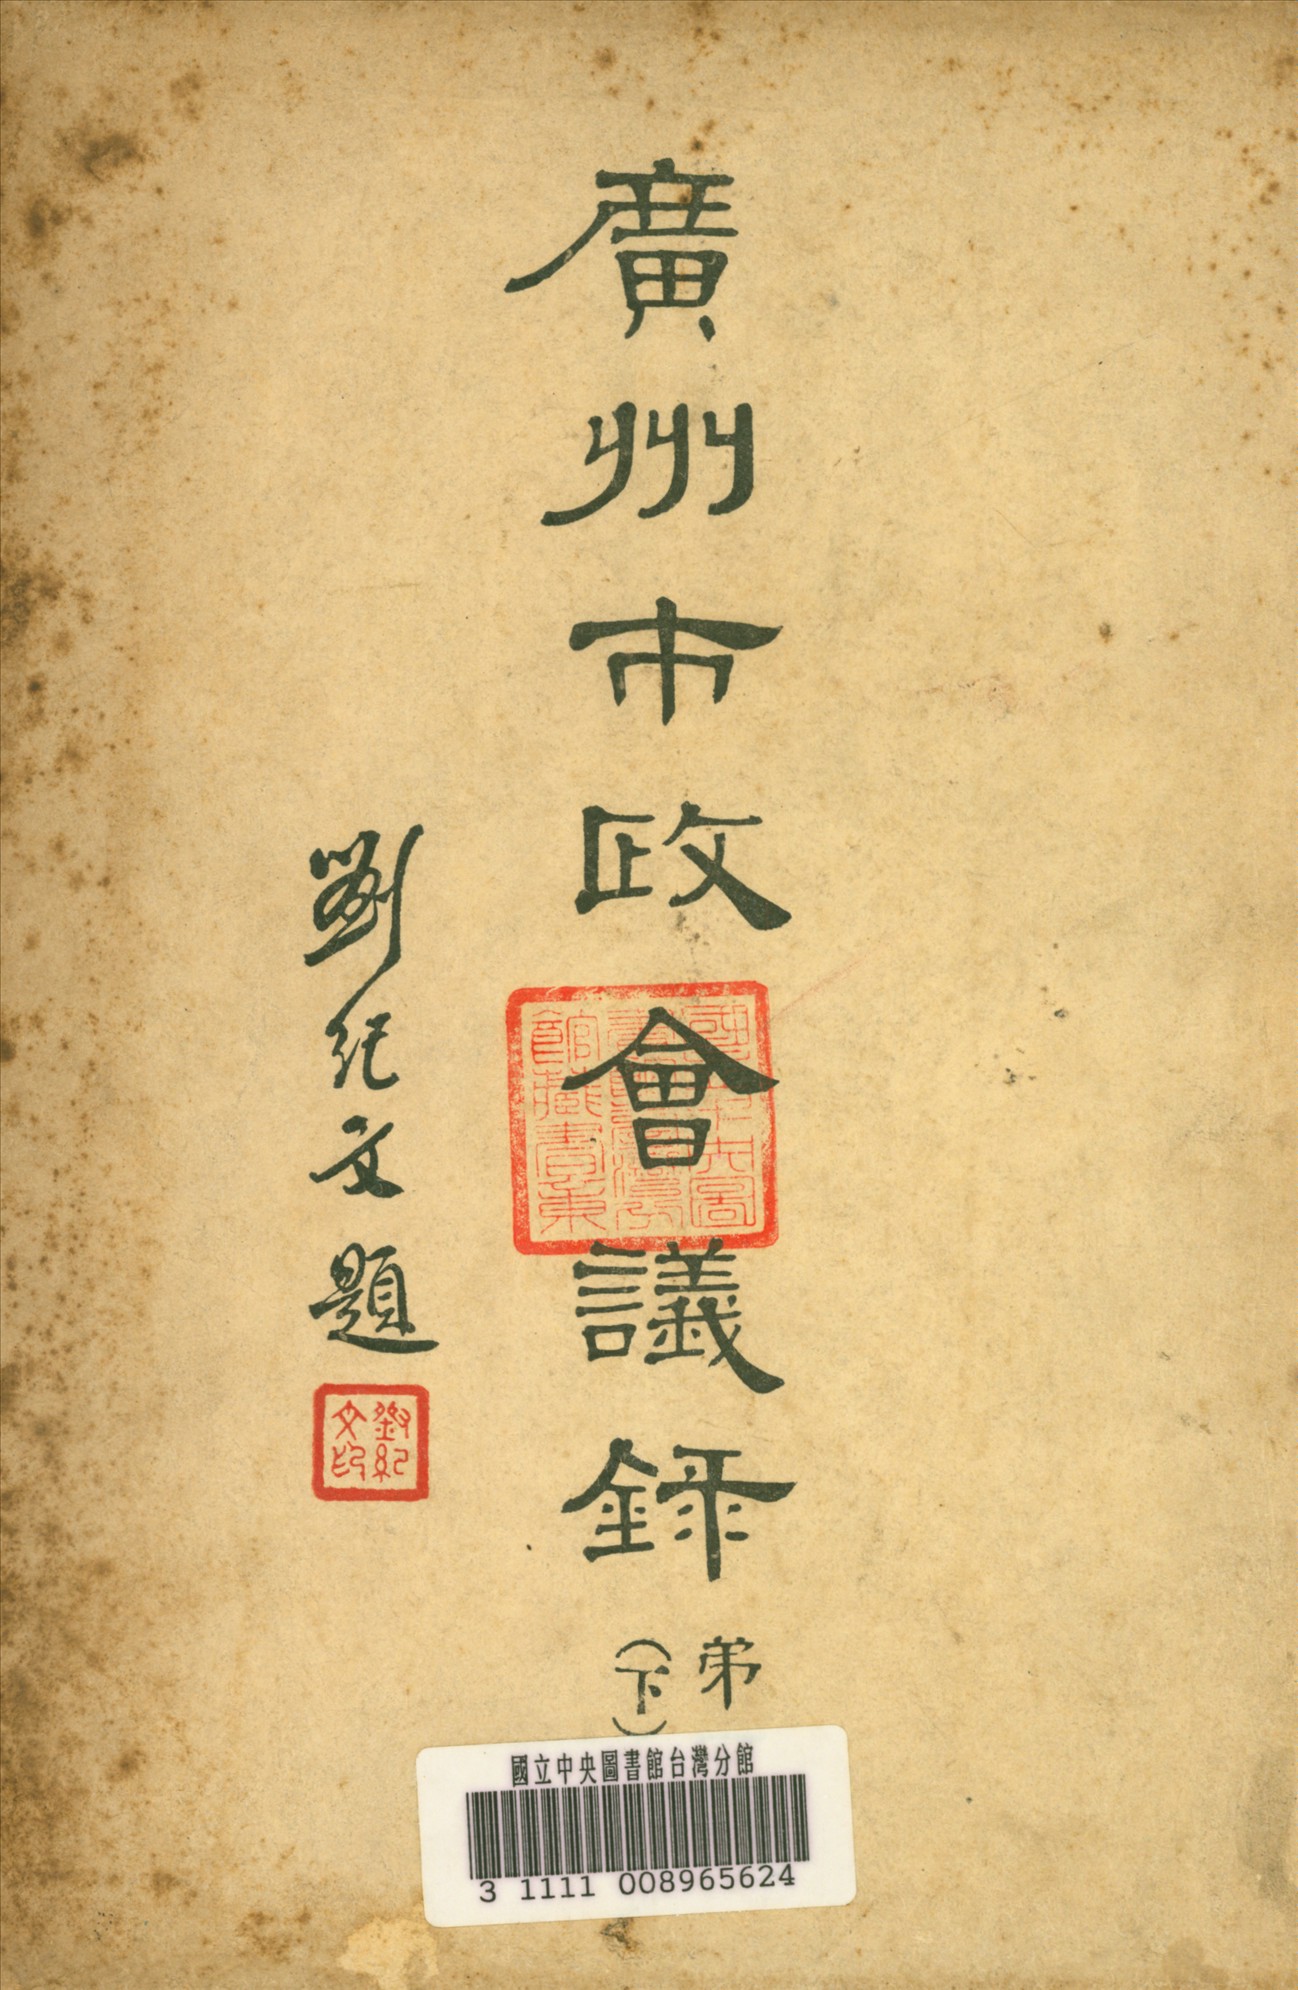 廣州市政會議錄
弟
(下)
劉紀文題
劉紀
文印
國立中央圖
書館臺灣分
館藏書章
國立中央圖書館台灣分館
3 1111 008965624